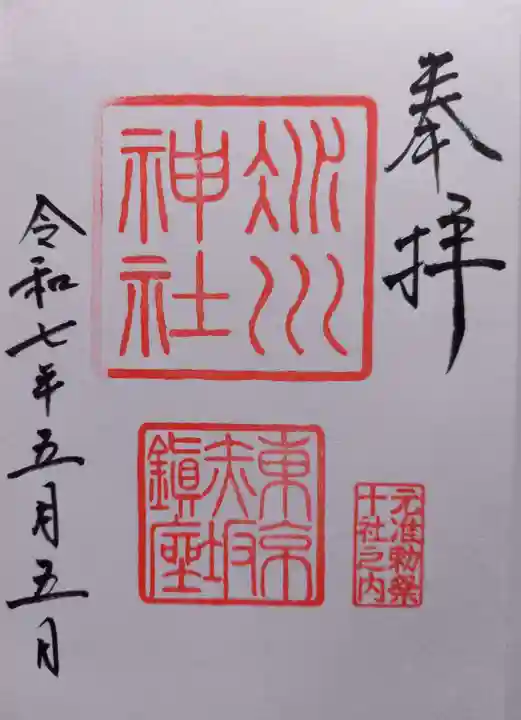 奉拝
氷川
神社
東京
赤坂
鎮座
元准勅祭
十社之内
令和七年五月五月